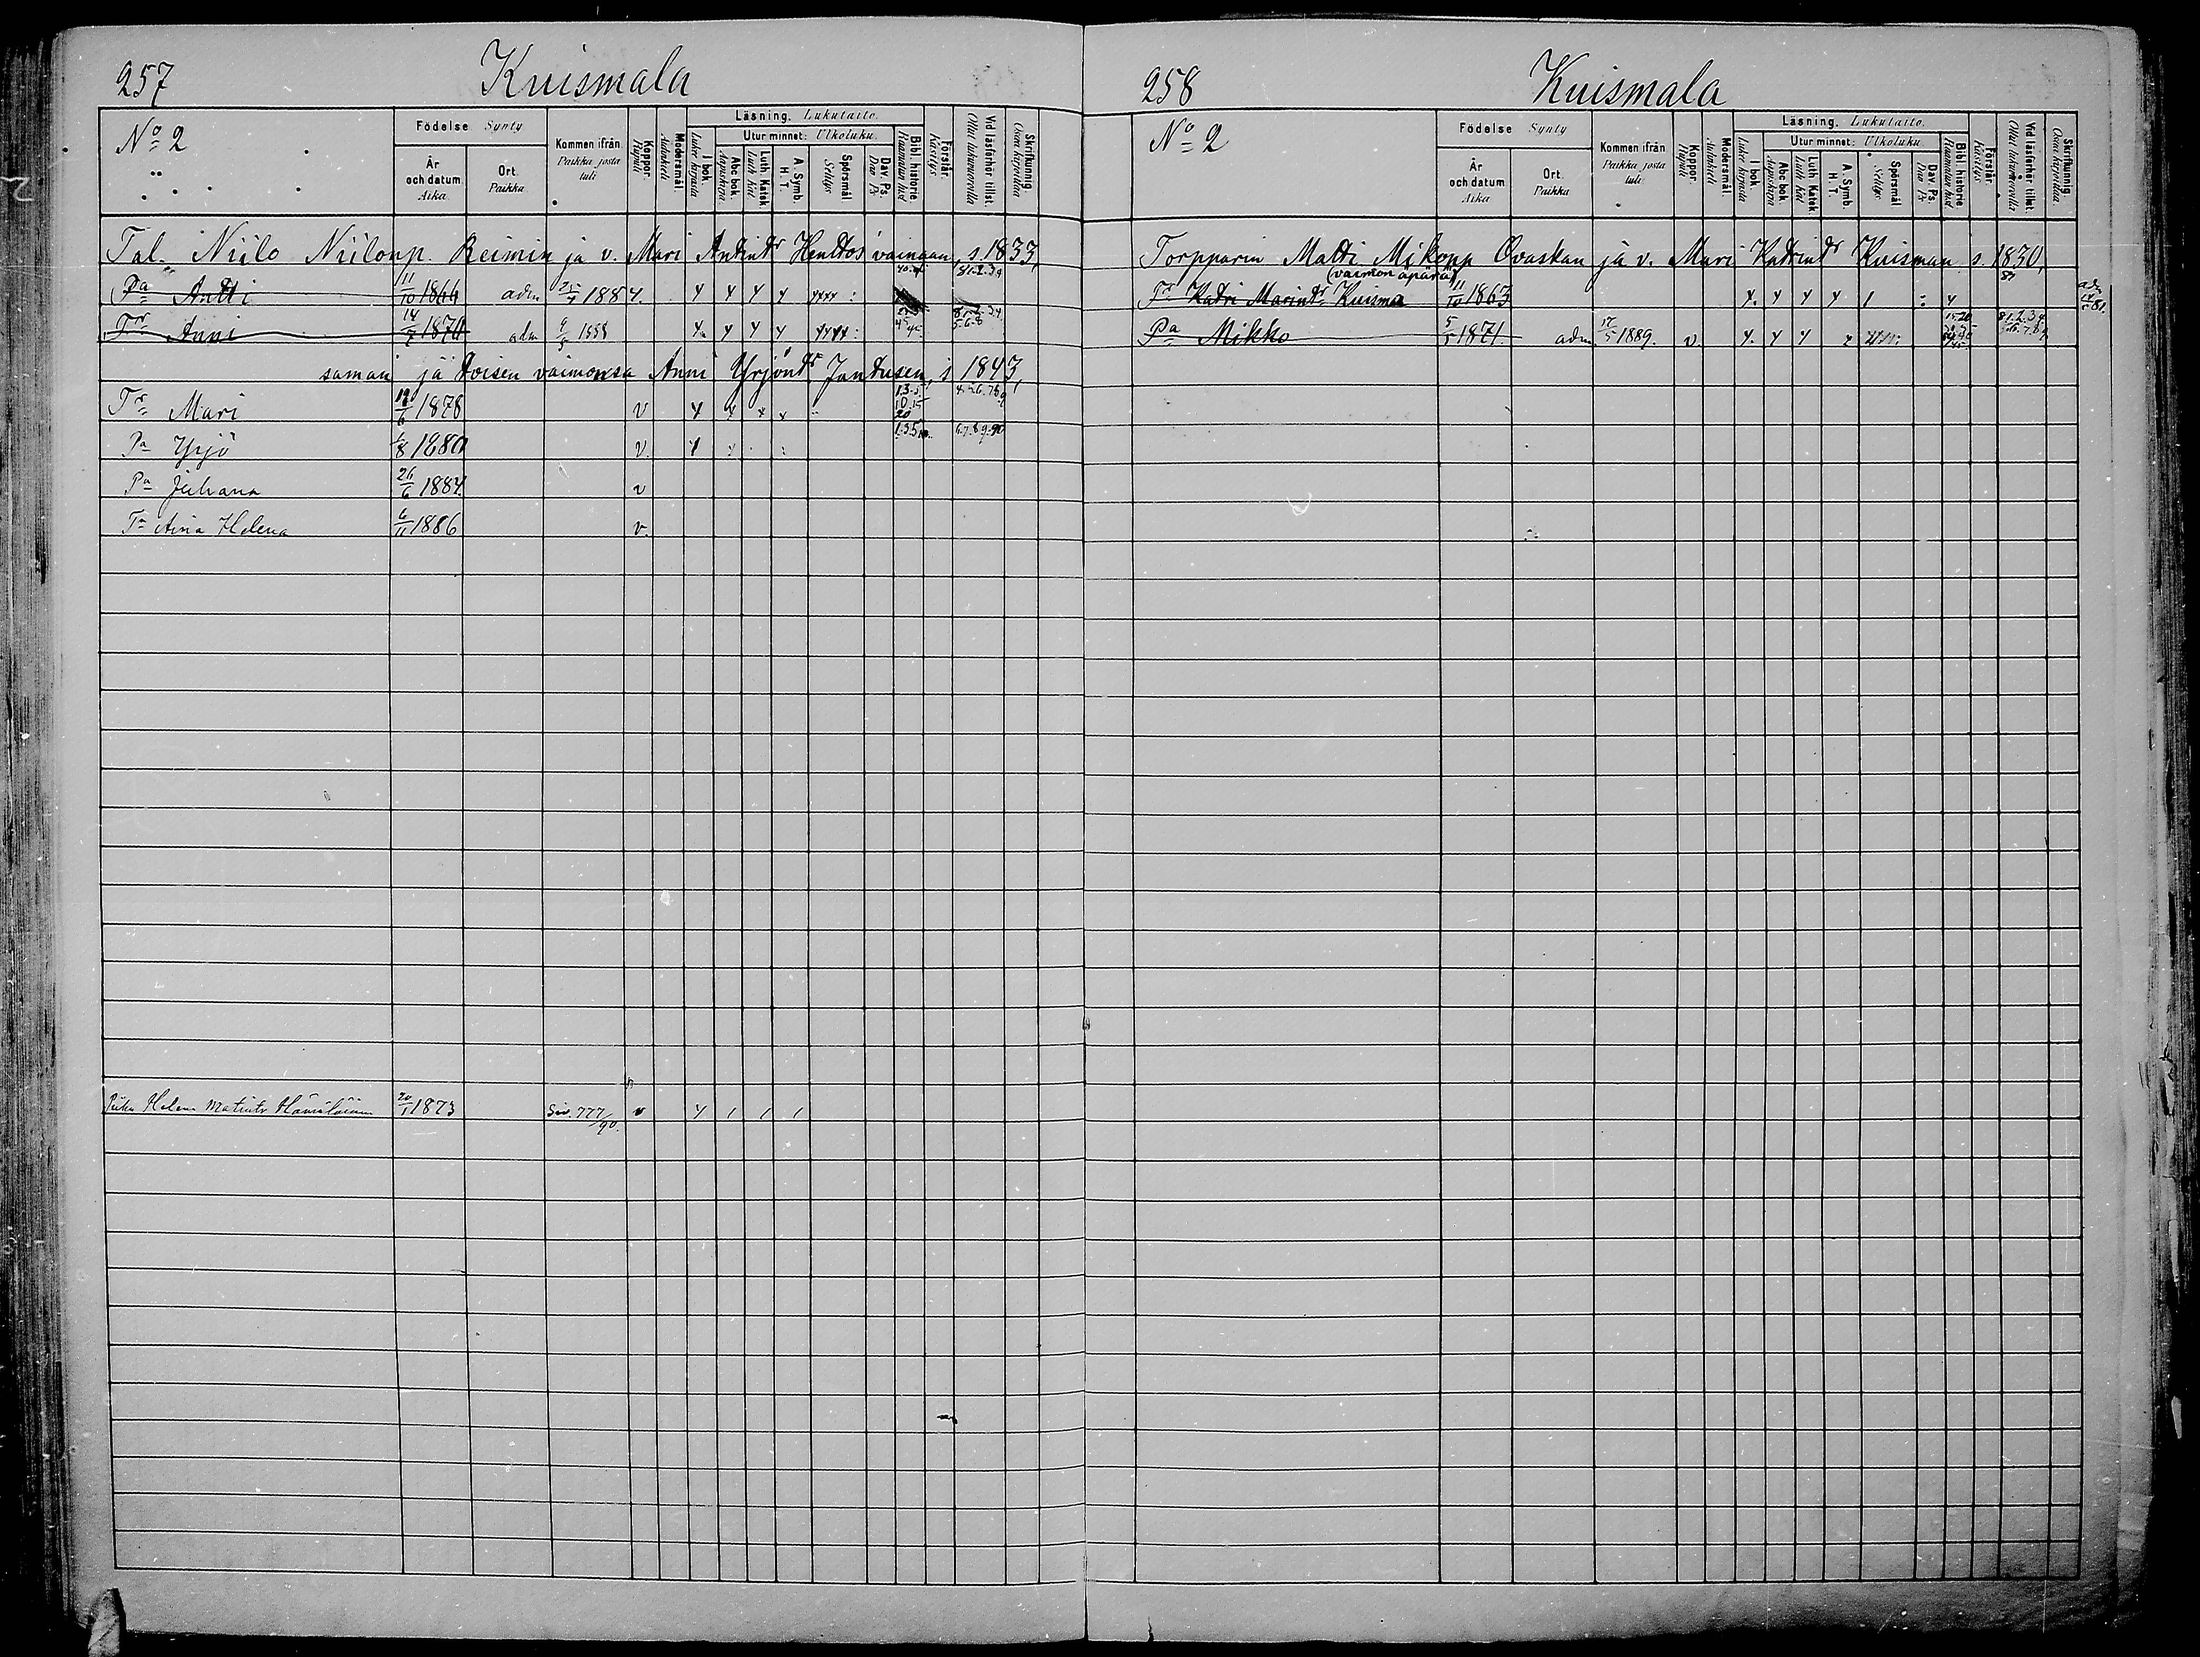 257 Kuismala
No 2
Födelse Synty
År och datum. Aika.
Ort. Paikka.
Kommen ifrån. Paikka josta tuli.
Koppor. Rupuli
Modersmål. Äidinkieli
Läsning. Lukutaito.
I bok. Lukee kirjasta
Utur minnet: Ulkoluku.
Abc bok. Aapiskirja
Luth. Katek. Luth. kat.
A. Symb. H. T.
Spörsmål Selitys
Dav. Ps. Dav. Ps.
Bibl. historie Raamatun hist.
Förstår. Käsitys
Vid läsförhör tillst. Ollut lukuvuorolla
Skrifkunnig. Osaa kirjoittaa
Tal. Niilo Niilonp. Reimin ja v. Mari Antint Henttos vainaan, s. 1833,
Pa Antti 11/10 1866 adm 1884. 81.2.3.4
Tr Anni 14/7 1870 adm 1888
saman ja toisen vaimonsa Anni Yrjönt Jantusen, s 1843,
Tr Mari 6 1878 v 1.3.5 10.15 20
Pa Yrjö 8 1880 v. 1.3.5 6.7.8.9.90
Pa Juhana 26/6 1884 v
Tr Aina Helena 6/11 1886 v.
Piika Helena Matintr Hämäläinen 20/1 1873 Siv. 777/90. v
258 Kuismala
No 2
Födelse Synty
År och datum Aika
Ort. Paikka
Kommen ifrån Paikka josta tuli.
Koppor. Rupuli
Modersmål. Äidinkieli
Läsning. Lukutaito.
I bok Lukee kirjasta
Utur minnet: Ulkoluku
Abc bok. Aapiskirja
Luth. Katek. Luth. kat
A. Symb. H. T.
Spörsmål Selitys
Dav. Ps. Dav. Ps
Bibl. historie Raamatun hist
Förstår. Käsitys
Vid läsförhör tillst. Ollut lukuvuorolla
Skrifkunnig. Osaa kirjoittaa.
Torpparin Matti Mikonp Ovaskan ja v. Mari Katrintr Kuisman s. 1830,
(vaimon äpärä)
Tr Katri Marintr Kuisma 11/10 1863 adm 81.
Pa Mikko 5/5 1871. adm 17/5 1889. v 15.20